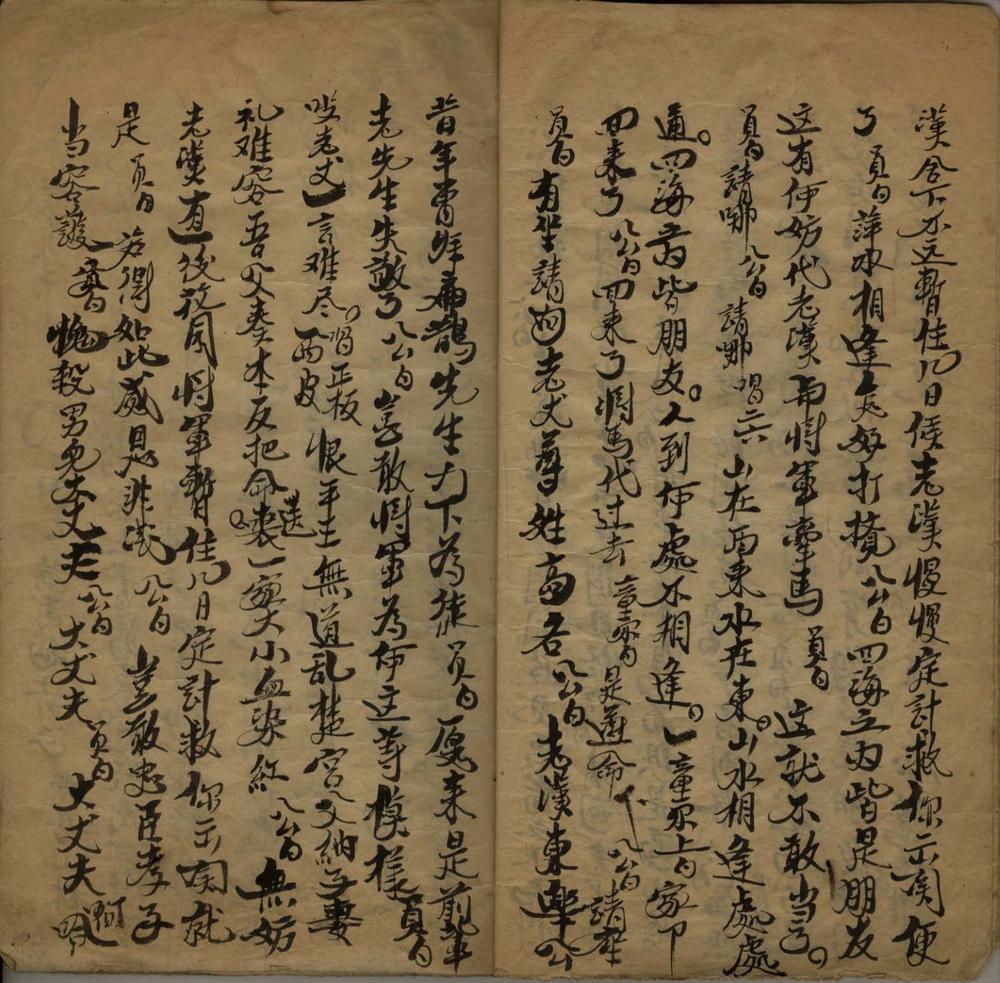 漢舍下不远暫住几日候老漢慢慢定計救你出関便
了 員白 萍水相逢怎好打攪 公白 四海之内皆是朋友
这有何妨代老漢與將軍牽馬 員白 这就不敢当了
員白 請哪 公白 請哪 唱二六 山在西来水在東山水相逢處處
通四海之内皆朋友人到何處不相逢 童兒上白 家下
回来了 公白 回来了將馬代过去 童兒白 是遵命 下 公白 請坐
員白 有坐請問老丈尊姓高名 公白 老漢東皋公
昔年曾拜扁鵲先生门下為徒 員白 原来是前輩
老先生失敬了 公白 豈敢將軍為何这等模樣 員白
哎老丈一言难尽 唱正板西皮 恨平王無道乱楚宮父納子妻
礼难容吾父奏本反把命喪一家大小血染紅 公白 無妨
老漢有一後花园將軍暫住几日定計救你出関就
是 員白 若得如此感恩非浅 公白 豈敢忠臣孝子
当容護 員白 愧殺男兒大丈夫 公白 大丈夫 員白 大丈夫 啊